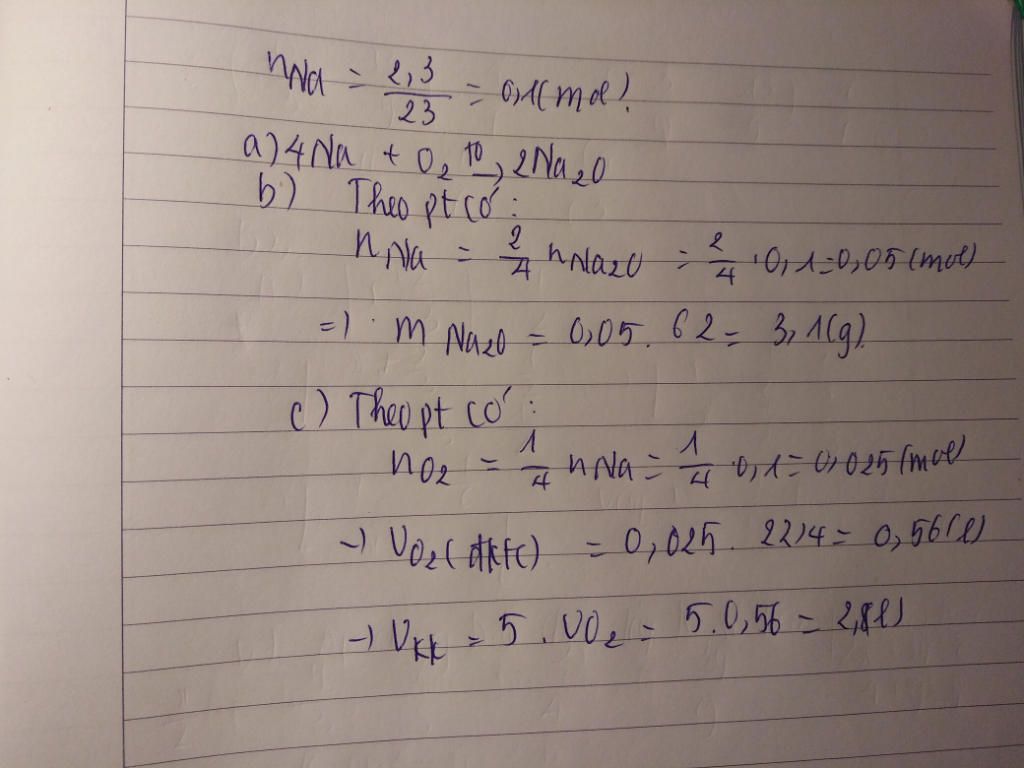 nNa = 2,3/23 = 0,1(mol).
a) 4Na + O2 t0→ 2Na2O
b) Theo pt có:
nNa = 2/4 nNa2O = 2/4 . 0,1 = 0,05 (mol)
=) . m Na2O = 0,05 . 62 = 3,1(g).
c) Theo pt có:
nO2 = 1/4 nNa = 1/4 . 0,1 = 0,025 (mol)
→ VO2 (đktc) = 0,025 . 22,4 = 0,56 (l)
→ Vkk = 5 . VO2 = 5.0,56 = 2,8(l)